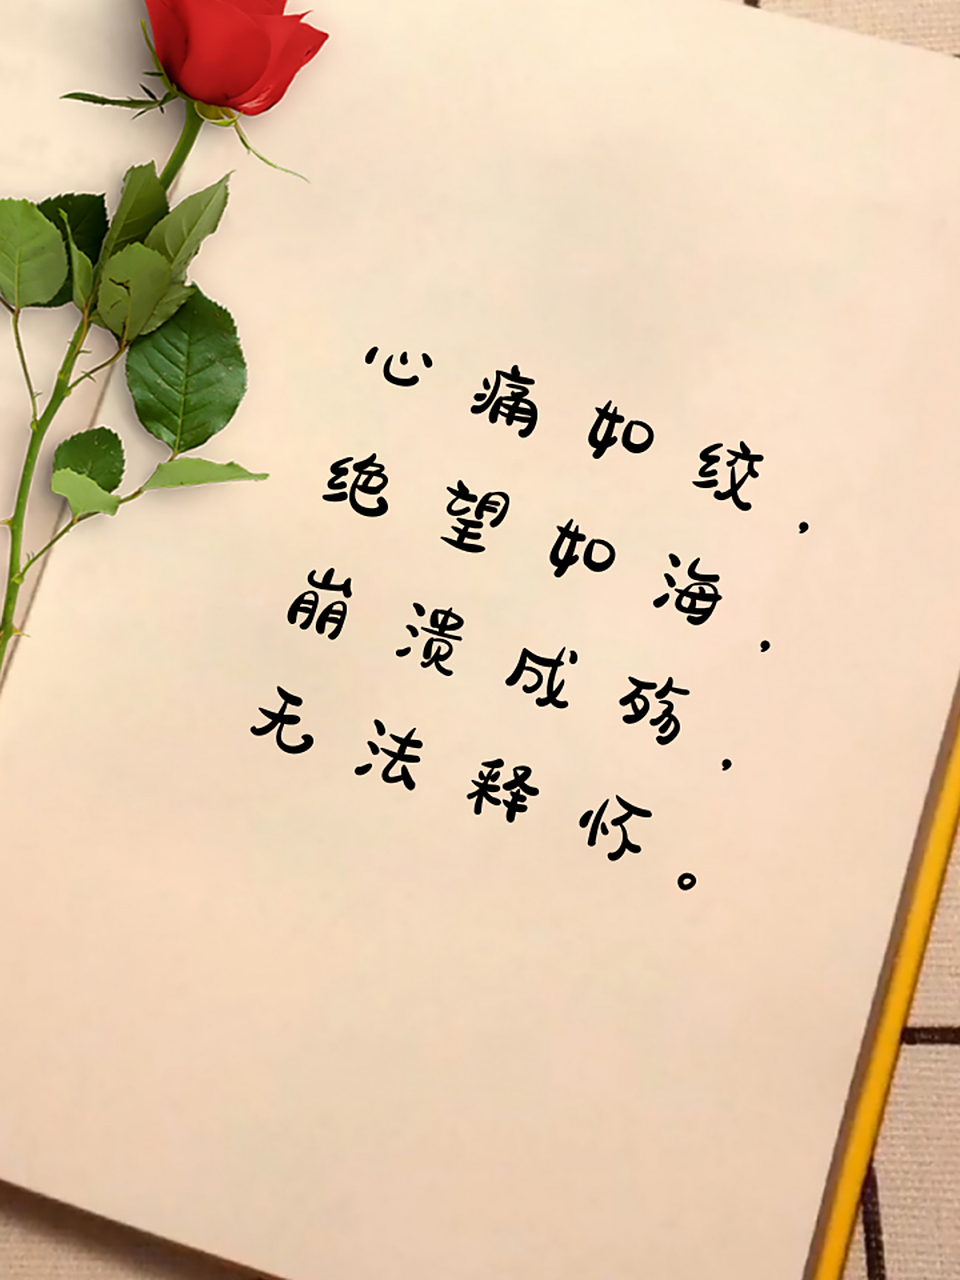 心痛如绞，
绝望如海，
崩溃成殇，
无法释怀。